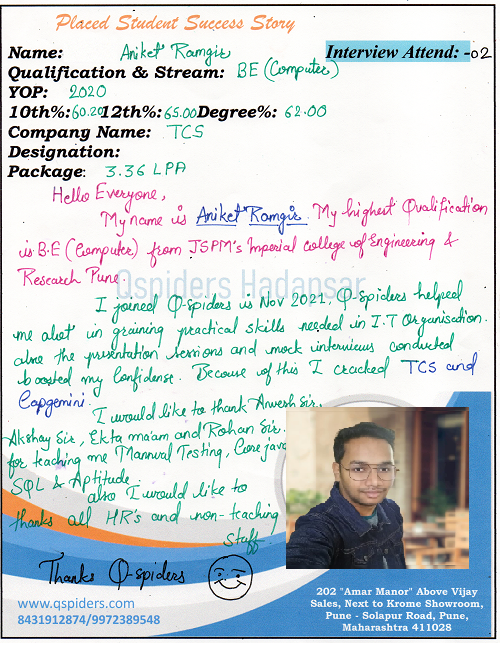 Placed Student Success Story
Name: Aniket Ramgir Interview Attend: -02
Qualification & Stream: BE (Computer)
YOP: 2020
10th%: 60.20 12th%: 65.00 Degree%: 62.00
Company Name: TCS
Designation:
Package: 3.36 LPA
Hello Everyone,
My name is Aniket Ramgir. My highest Qualification
is B.E (Computer) from JSPM's Imperial college of Engineering &
Research Pune.
Qspiders Hadapsar
I joined Q-spiders is Nov 2021, Q-spiders helped
me alot in graining practical skills needed in I.T Organisation.
alne the presentation sessions and mock interviews conducted
boosted my confidense. Because of this I cracked TCS and
Capgemini
I would like to thank Anvesh Sir,
Akshay Sir, Ekta ma'am and Rohan Sir.
for teaching me Mannual Testing, Core java
SQL & Aptitude
also I would like to
thanks all HR's and non-teaching
Staff
Thanks Q-spiders
www.qspiders.com
8431912874/9972389548
202 "Amar Manor" Above Vijay
Sales, Next to Krome Showroom,
Pune - Solapur Road, Pune,
Maharashtra 411028